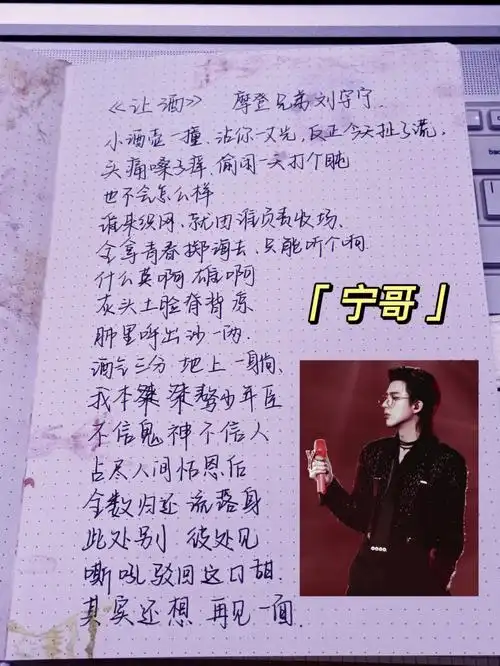 《让酒》 摩登兄弟刘宇宁.
小酒壶一撞、沾你一叉光,反正今天扯了谎,
头痛嗓子痒 偷闲一天打个盹
也不会怎么样
谁来织网、就由谁负责收场、
全拿青春掷海去,只能听个响
什么英啊雄啊
灰头土脸脊背凉
肺里呼出沙一两.
酒气三分 地上一身倘、
我本桀 桀骜少年臣
不信鬼神不信人
占尽人间恬恩后
全数归还 流落身
此处别 彼处见
嘶吼驳回这口甜.
其实还想 再见一面.
「宁哥」